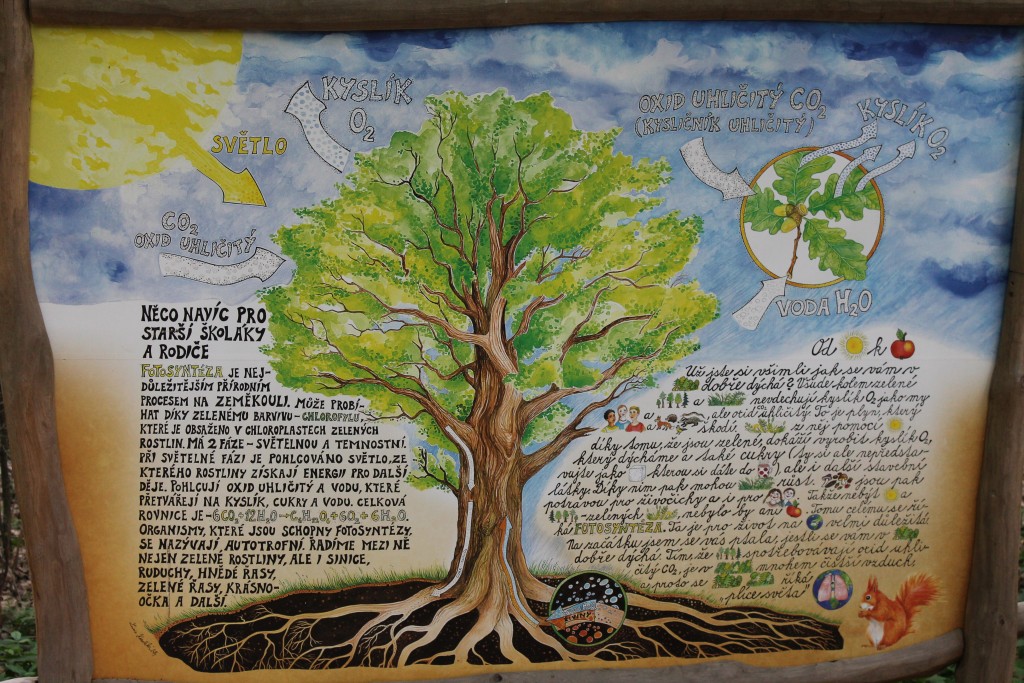 SVĚTLO
KYSLÍK
O₂
CO₂
OXID UHLIČITÝ
OXID UHLIČITÝ CO₂
(KYSLIČNÍK UHLIČITÝ)
KYSLÍK O₂
VODA H₂O
NĚCO NAVÍC PRO
STARŠÍ ŠKOLÁKY
A RODIČE
FOTOSYNTÉZA JE NEJ-
DŮLEŽITĚJŠÍM PŘÍRODNÍM
PROCESEM NA ZEMĚKOULI. MŮŽE PROBÍ-
HAT DÍKY ZELENÉMU BARVIVU - CHLOROFYLU,
KTERÉ JE OBSAŽENO V CHLOROPLASTECH ZELENÝCH
ROSTLIN. MÁ 2 FÁZE - SVĚTELNOU A TEMNOSTNÍ.
PŘI SVĚTELNÉ FÁZI JE POHLCOVÁNO SVĚTLO, ZE
KTERÉHO ROSTLINY ZÍSKAJÍ ENERGII PRO DALŠÍ
DĚJE. POHLCUJÍ OXID UHLIČITÝ A VODU, KTERÉ
PŘETVÁŘEJÍ NA KYSLÍK, CUKRY A VODU. CELKOVÁ
ROVNICE JE - 6CO₂ + 12H₂O → C₆H₁₂O₆ + 6O₂ + 6H₂O.
ORGANISMY, KTERÉ JSOU SCHOPNY FOTOSYNTÉZY,
SE NAZÝVAJÍ AUTOTROFNÍ. ŘADÍME MEZI NĚ
NEJEN ZELENÉ ROSTLINY, ALE I SINICE,
RUDUCHY, HNĚDÉ ŘASY,
ZELENÉ ŘASY, KRÁSNO-
OČKA A DALŠÍ.
Od k
Už jste si všimli jak se vám v
dobře dýchá? Všude kolem zelené
a nevdechují kyslík O₂ jako my
a , ale oxid CO₂ uhličitý. To je plyn, který
škodí. z něj pomocí
díky tomu, že jsou zelené, dokáží vyrobit kyslík O₂,
který dýcháme a také cukry (Ty si ale nepředsta-
vujte jako kterou si dáte do ), ale i další stavební
látky. Díky nim pak mohou růst. jsou pak
potravou pro živočichy a i pro Takže nebýt a
-zelených nebylo by ani . Tomu celému se ří-
ká FOTOSYNTÉZA. Ta je pro život na velmi důležitá.
Na začátku jsem se vás ptala, jestli se vám v
dobře dýchá. Tím, že spotřebovávají oxid uhli-
čitý CO₂, je v mnohem čistší vzduch
a proto se říká
„plíce světa“